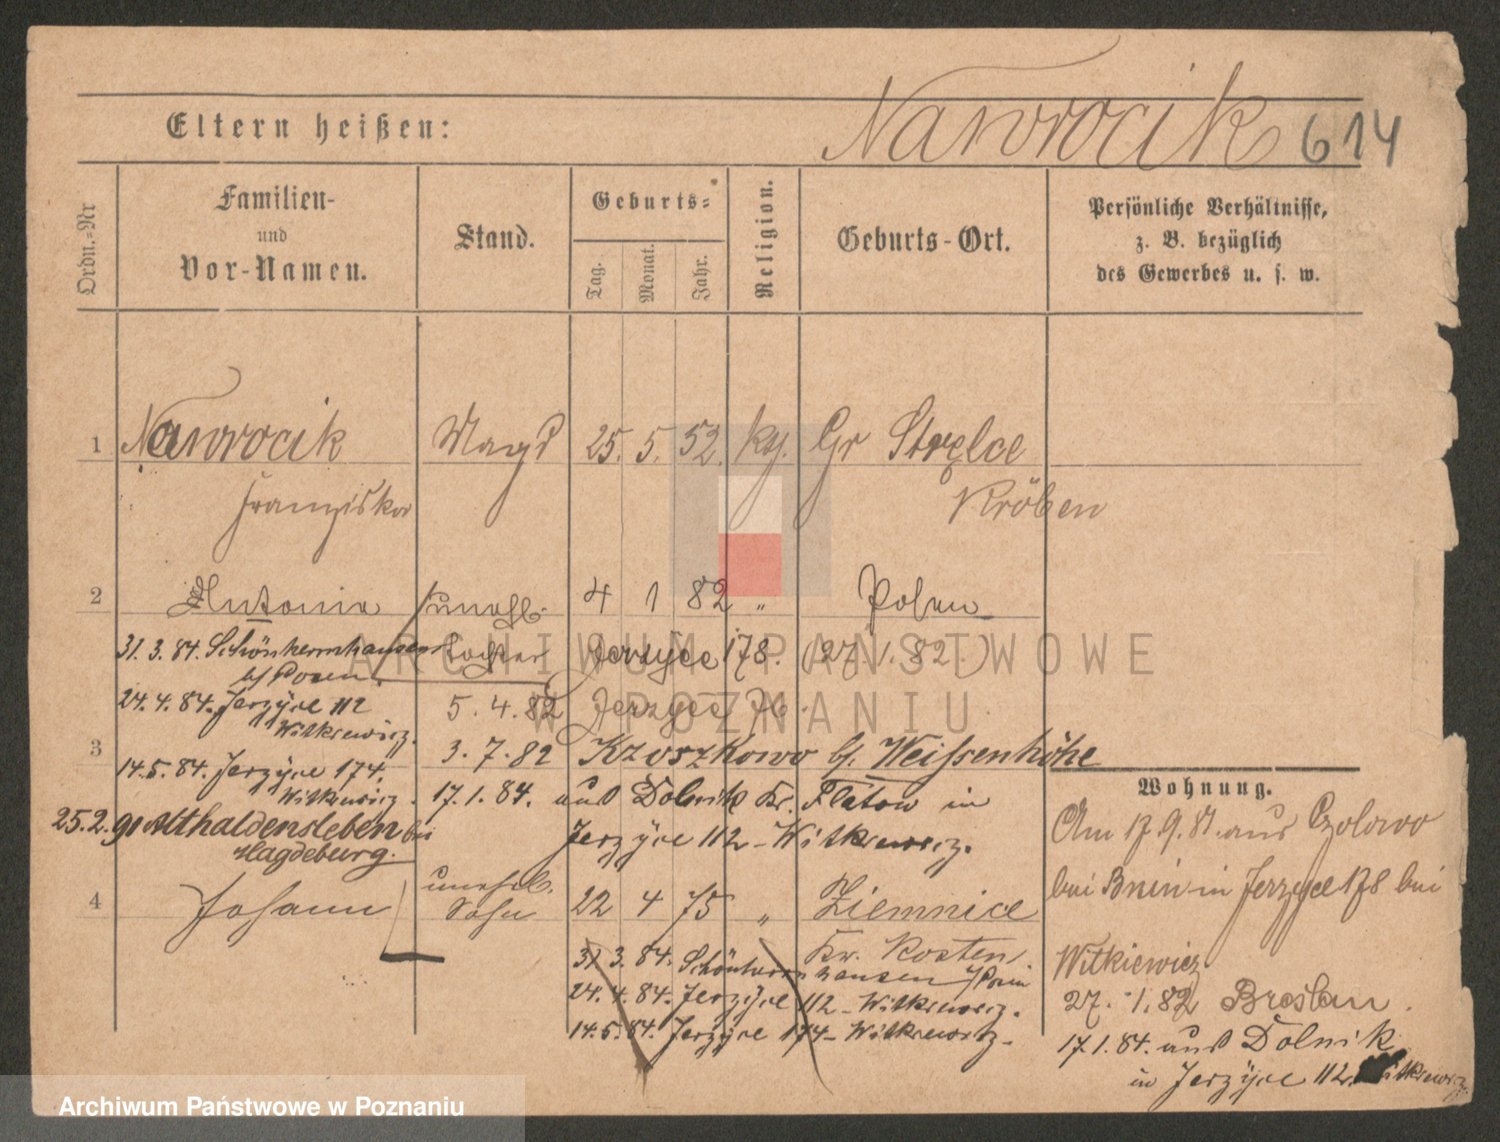 Eltern heißen:
Nawrocik 614
Ordn.-Nr
Familien-
und
Vor-Namen.
Stand.
Geburts-
Tag. Monat. Jahr.
Religion.
Geburts-Ort.
Persönliche Verhältnisse,
z. B. bezüglich
des Gewerbes u. s. w.
1 Nawrocik Magd 25. 5. 52. kg. Gr Strzelce
Franziska Kröben
2 Antonie unehl. 4 1 82 " Posen
Tochter Jerzyce 178. (27.1.82.)
31.3.84. Schönherrnhausen
b/Posen.
24.4.84. Jerzyce 112
Witkiewicz.
5.4.82 Jerzyce 76.
3
14.5.84. Jerzyce 174.
Witkiewicz.
3.7.82 Krzoszkowo b/ Weissenhöhe
17.1.84. aus Dolnik Kr. Flatow in
Jerzyce 112 - Witkiewicz.
25.2.91 Althaldensleben bei
Magdeburg.
4 Johann unehel. Sohn 22 4 75 " Ziemnice
Kr. Kosten
31.3.84. Schönherrnhausen b/Posen
24.4.84. Jerzyce 112 - Witkiewicz.
14.5.84. Jerzyce 174 - Witkiewicz -
Wohnung.
Am 17.9.81. aus Czolowo
bei Bnin in Jerzyce 178 bei
Witkiewicz
27.1.82 Breslau.
17.1.84. aus Dolnik
in Jerzyce 112. Witkiewicz
ARCHIWUM PAŃSTWOWE
W POZNANIU
Archiwum Państwowe w Poznaniu